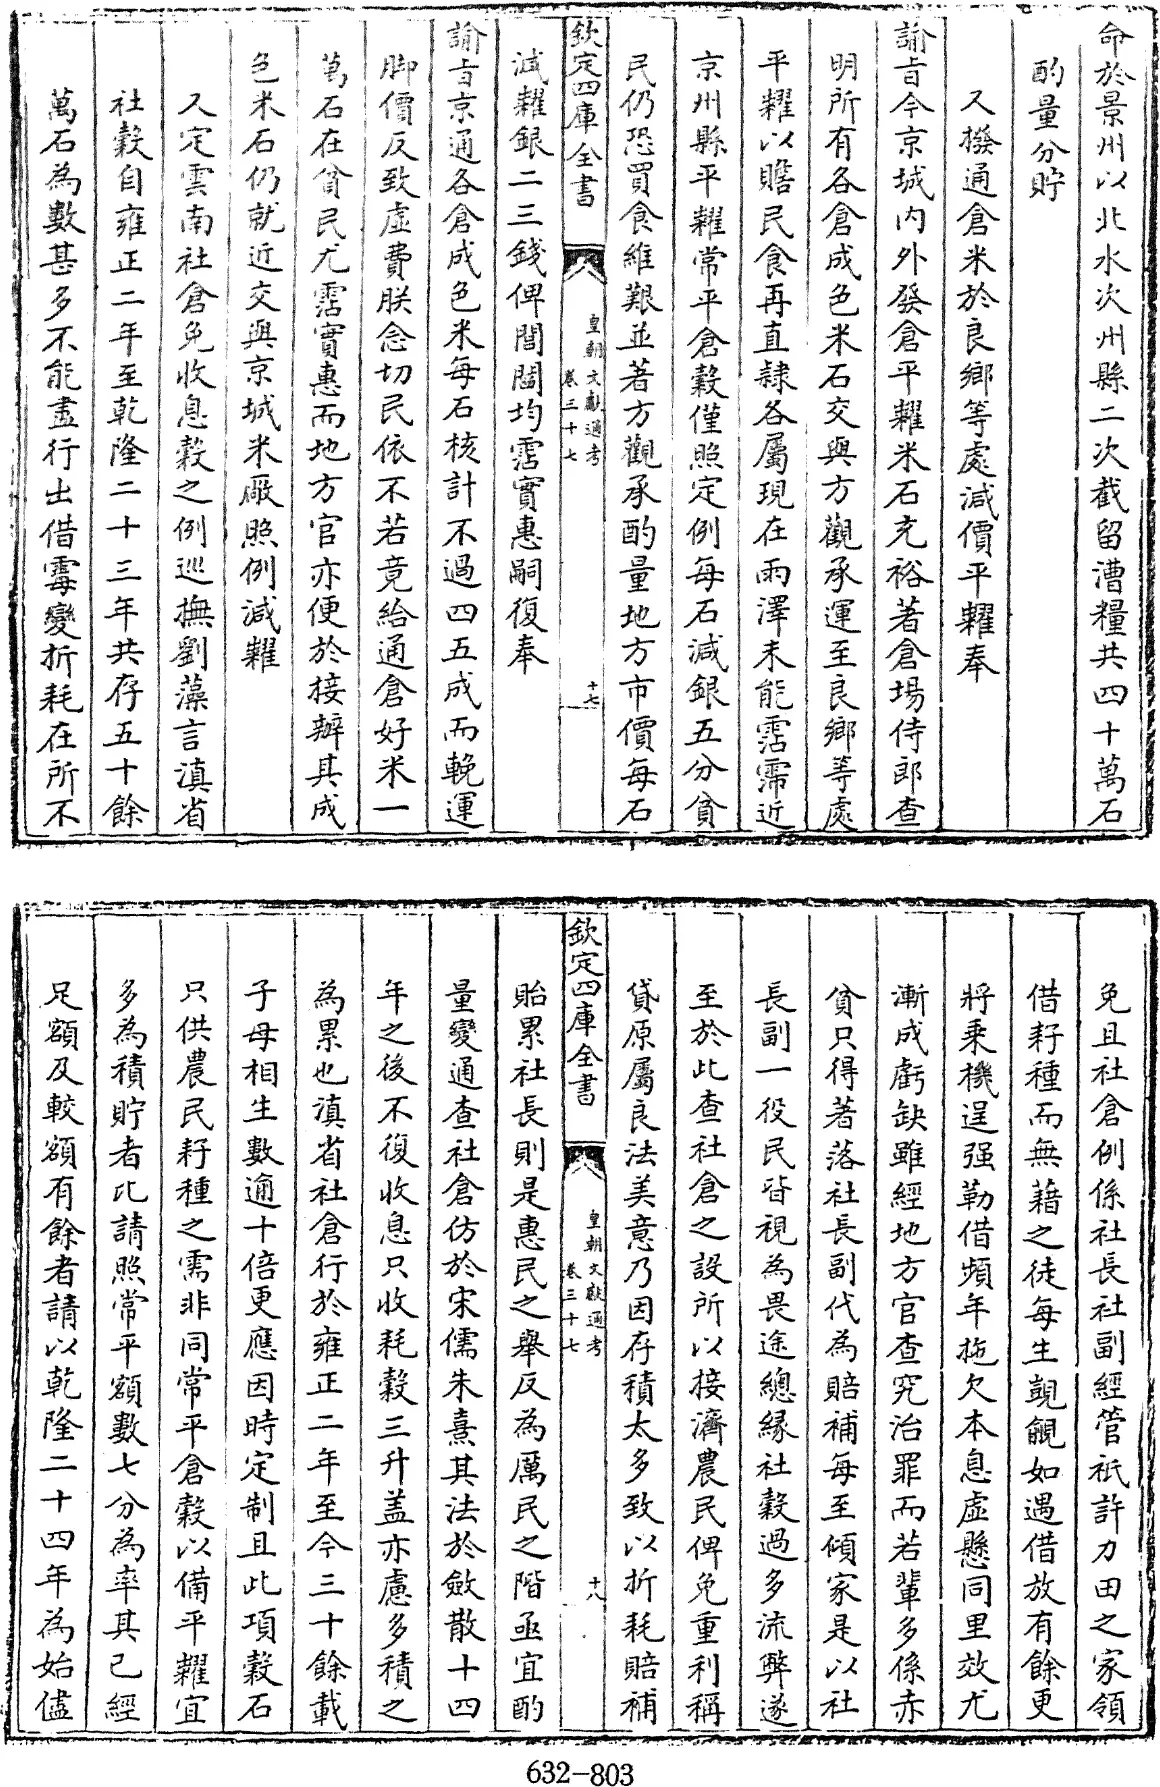 命於景州以北水次州縣二次截留漕糧共四十萬石
酌量分貯
又撥通倉米於良鄉等處減價平糶奉
諭旨今京城内外發倉平糶米石充裕著倉場侍郎查
明所有各倉成色米石交與方觀承運至良鄉等處
平糶以贍民食再直隸各屬現在雨澤未能霑霈近
京州縣平糶常平倉穀僅照定例每石減銀五分貧
民仍恐買食維艱並著方觀承酌量地方市價每石
欽定四庫全書
皇朝文獻通考
卷三十七
十七
減糶銀二三錢俾閭閻均霑實惠嗣復奉
諭旨京通各倉成色米每石核計不過四五成而輓運
脚價反致虛費朕念切民依不若竟給通倉好米一
萬石在貧民尤霑實惠而地方官亦便於接辦其成
色米石仍就近交與京城米厰照例減糶
又定雲南社倉免收息穀之例巡撫劉藻言滇省
社穀自雍正二年至乾隆二十三年共存五十餘
萬石為數甚多不能盡行出借霉變折耗在所不
免且社倉例係社長社副經管祇許力田之家領
借籽種而無藉之徒每生覬覦如遇借放有餘更
將乘機逞强勒借頻年拖欠本息虛懸同里效尤
漸成虧缺雖經地方官查究治罪而若輩多係赤
貧只得著落社長副代為賠補每至傾家是以社
長副一役民皆視為畏途總緣社穀過多流弊遂
至於此查社倉之設所以接濟農民俾免重利稱
貸原屬良法美意乃因存積太多致以折耗賠補
欽定四庫全書
皇朝文獻通考
卷三十七
十八
貽累社長則是惠民之舉反為厲民之階亟宜酌
量變通查社倉仿於宋儒朱熹其法於斂散十四
年之後不復收息只收耗穀三升盖亦慮多積之
為累也滇省社倉行於雍正二年至今三十餘載
子母相生數逾十倍更應因時定制且此項穀石
只供農民籽種之需非同常平倉穀以備平糶宜
多為積貯者比請照常平額數七分為率其已經
足額及較額有餘者請以乾隆二十四年為始儘
632-803